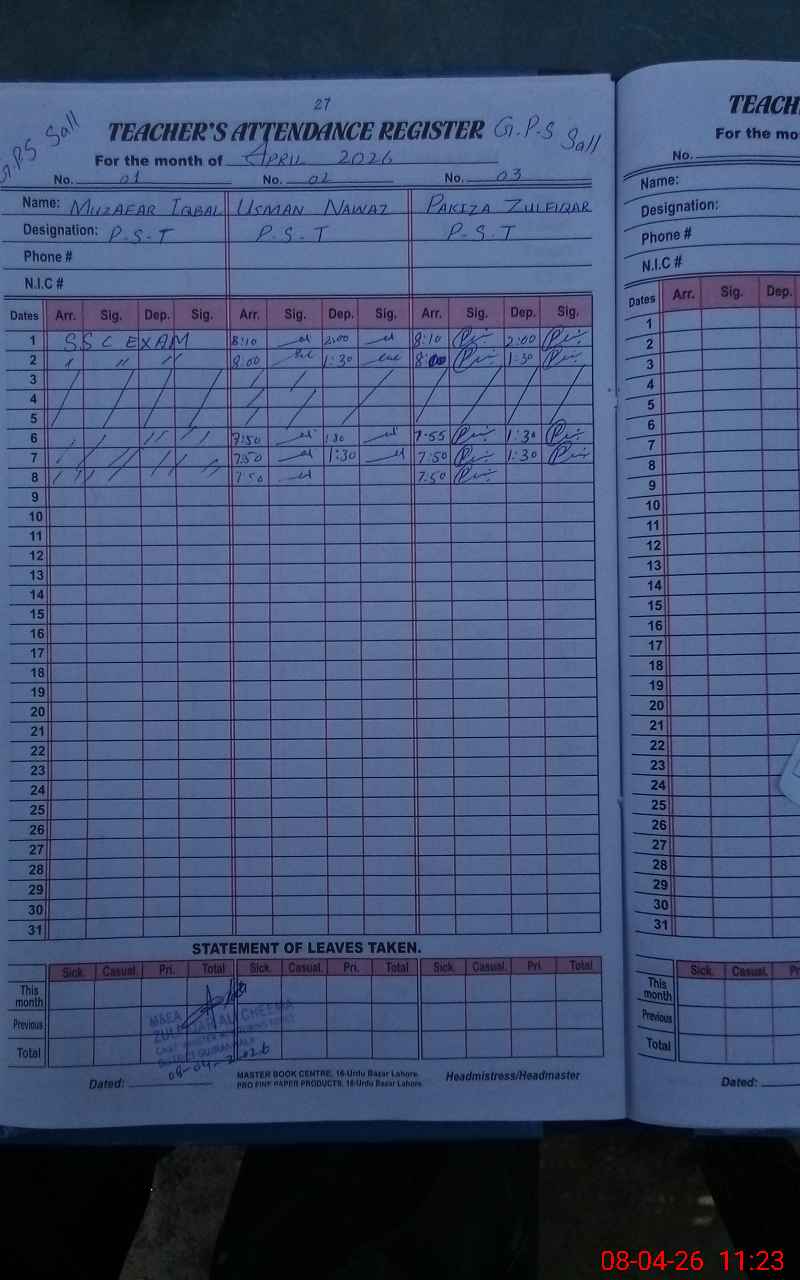 27
G.P.S Sall
TEACHER'S ATTENDANCE REGISTER G.P.S Sall
For the month of APRIL 2026
No. 01 No. 02 No. 03
Name: MUZAFAR IQBAL USMAN NAWAZ PAKIZA ZULFIQAR
Designation: P.S.T P.S.T P.S.T
Phone #
N.I.C #
Dates Arr. Sig. Dep. Sig. Arr. Sig. Dep. Sig. Arr. Sig. Dep. Sig.
1 SSC EXAM 8:10 2:00 8:10 2:00
2 " " " 8:00 1:30 8:00 1:30
3
4
5
6 7:50 1:30 7:55 1:30
7 7:50 1:30 7:50 1:30
8 7:50 7:50
9
10
11
12
13
14
15
16
17
18
19
20
21
22
23
24
25
26
27
28
29
30
31
STATEMENT OF LEAVES TAKEN.
Sick. Casual. Pri. Total Sick. Casual. Pri. Total Sick. Casual. Pri. Total
This month
Previous
Total
M&EA
ALI CHEEMA
08-04-2026
Dated:
MASTER BOOK CENTRE, 16-Urdu Bazar Lahore.
PRO FINE PAPER PRODUCTS, 16-Urdu Bazar Lahore.
Headmistress/Headmaster
TEACH
For the mo
No.
Name:
Designation:
Phone #
N.I.C #
Dates Arr. Sig. Dep.
1
2
3
4
5
6
7
8
9
10
11
12
13
14
15
16
17
18
19
20
21
22
23
24
25
26
27
28
29
30
31
Sick. Casual. Pr
This month
Previous
Total
Dated:
08-04-26 11:23